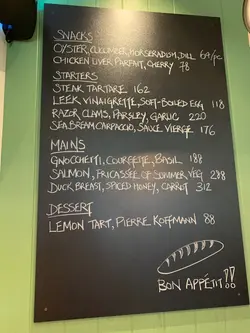 SNACKS
OYSTER, CUCUMBER, HORSERADISH, DILL 69/PC
CHICKEN LIVER PARFAIT, CHERRY 78
STARTERS
STEAK TARTARE 162
LEEK VINAIGRETTE, SOFT-BOILED EGG 118
RAZOR CLAMS, PARSLEY, GARLIC 220
SEA BREAM CARPACCIO, SAUCE VIERGE 176
MAINS
GNOCCHETTI, COURGETTE, BASIL 188
SALMON, FRICASSÉE OF SUMMER VEG 288
DUCK BREAST, SPICED HONEY, CARROT 312
DESSERT
LEMON TART, PIERRE KOFFMANN 88
BON APPÉTIT!!